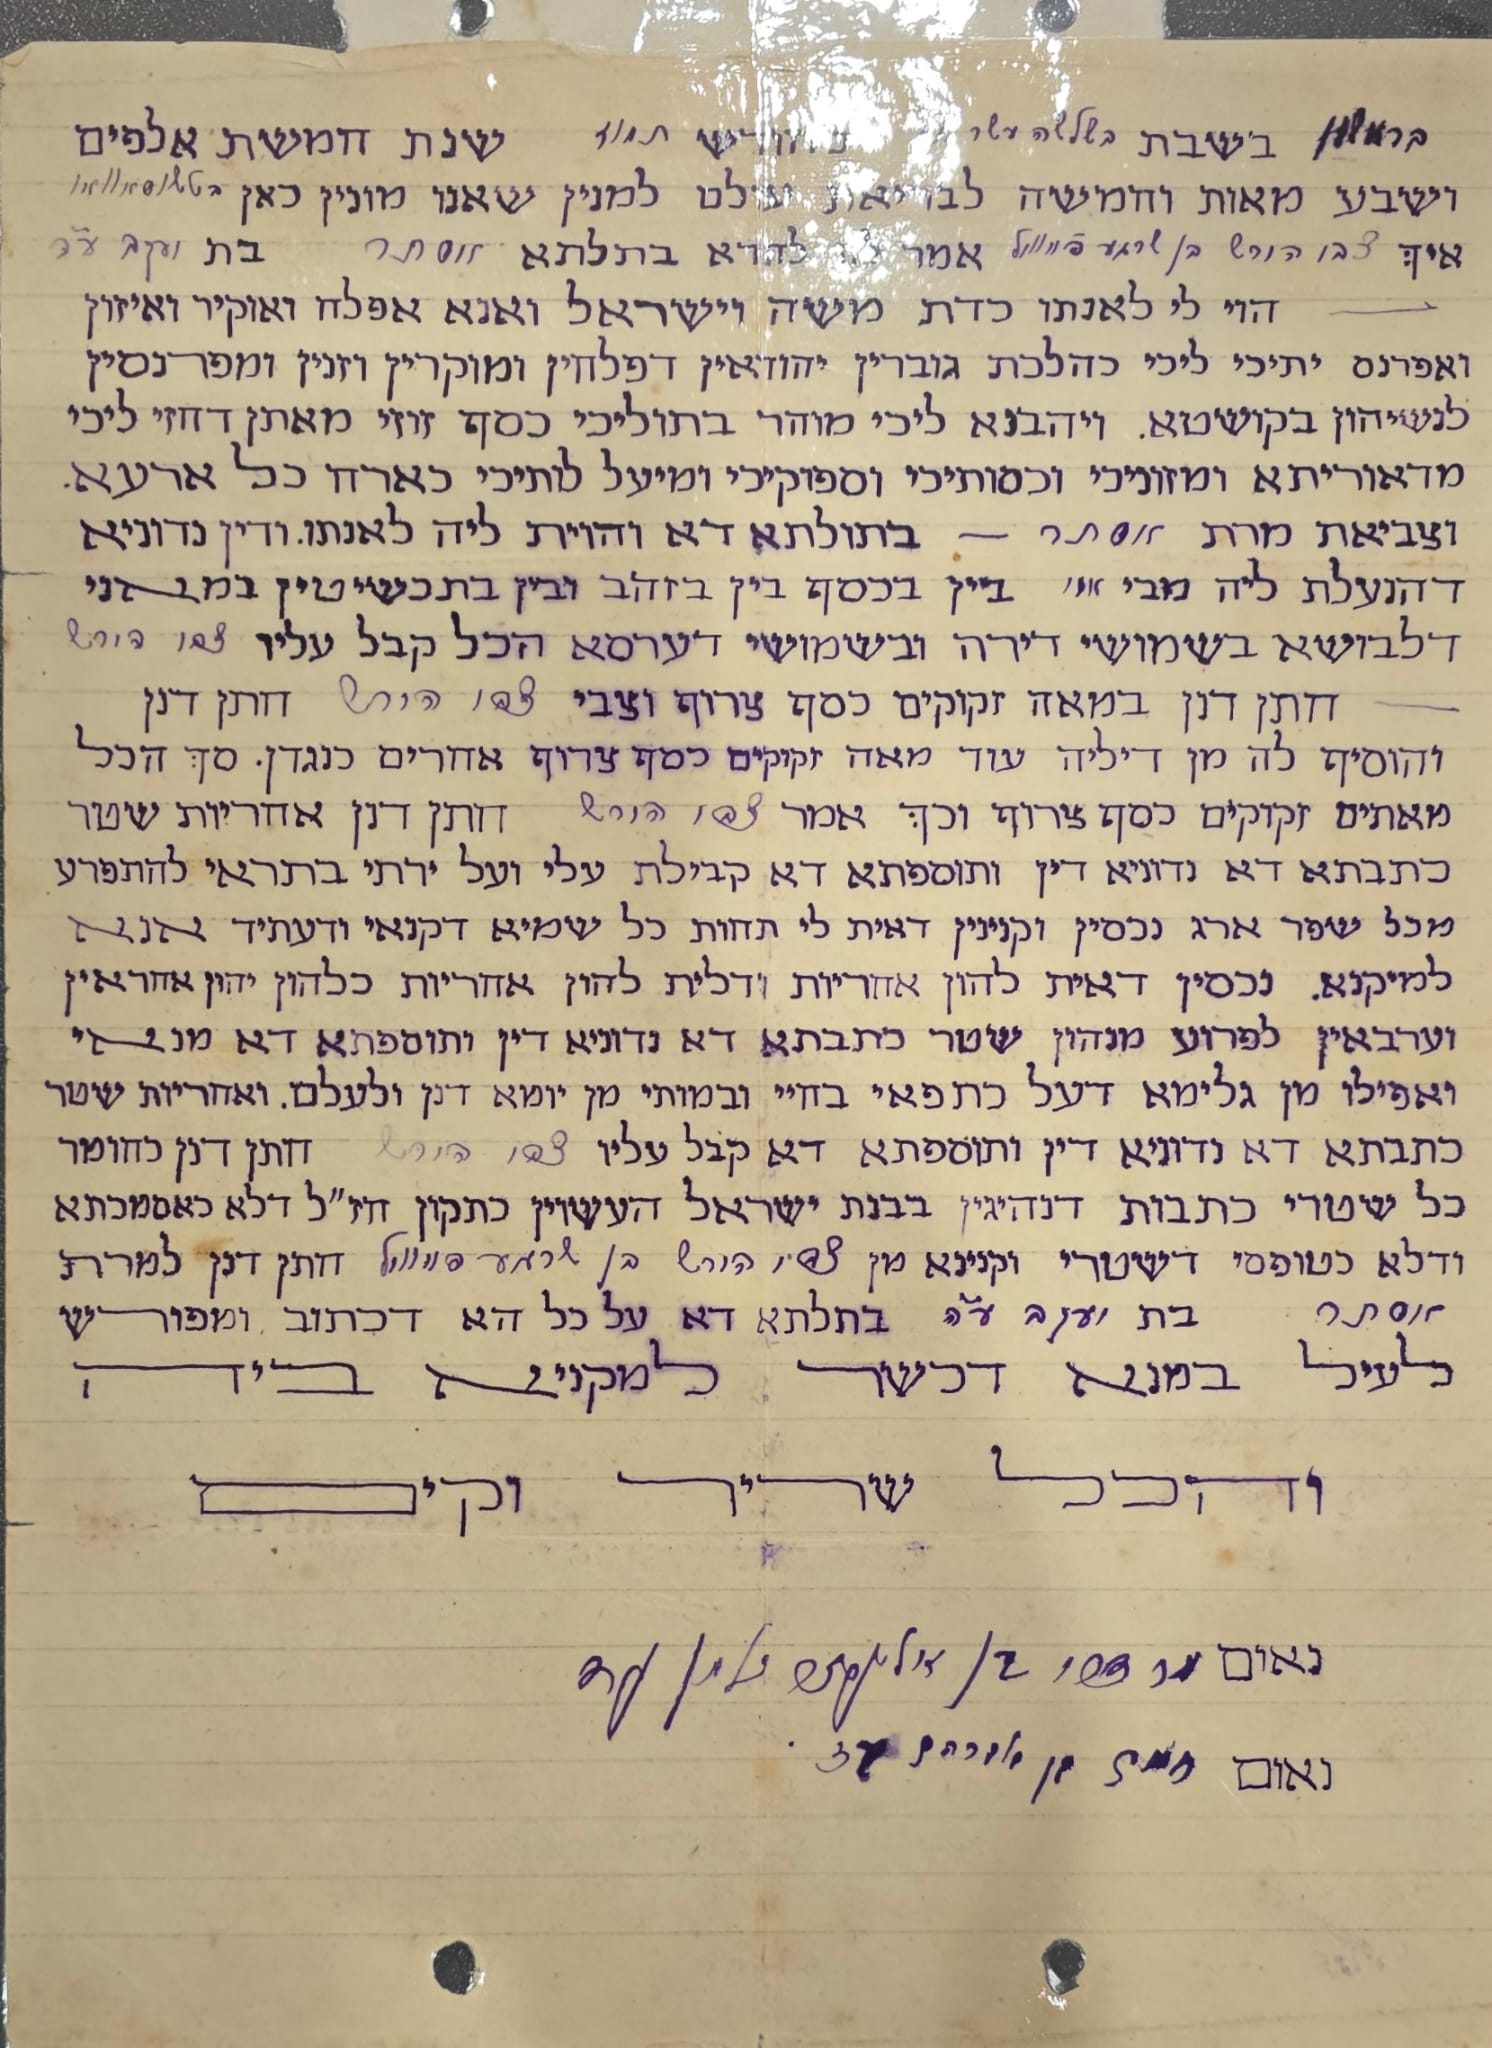 בראשון בשבת בשלשה עשר לחודש תמוז שנת חמשת אלפים
ושבע מאות וחמישה לבריאת עולם למנין שאנו מונין כאן
איך צבי הירש בן שרגא פייוויל אמר לה להדא בתלתא אסתר בת יעקב ע"ה
הוי לי לאנתו כדת משה וישראל ואנא אפלח ואוקיר ואיזון
ואפרנס יתיכי ליכי כהלכת גוברין יהודאין דפלחין ומוקרין וזנין ומפרנסין
לנשיהון בקושטא. ויהבנא ליכי מוהר בתוליכי כסף זוזי מאתן דחזי ליכי
מדאוריתא ומזוניכי וכסותיכי וספוקיכי ומיעל לותיכי כארח כל ארעא.
וצביאת מרת אסתר בתולתא דא והוית ליה לאנתו. ודין נדוניא
דהנעלת ליה מבי בין בכסף בין בזהב ובין בתכשיטין במאני
דלבושא בשמושי דירה ובשמושי דערסא הכל קבל עליו צבי הירש
חתן דנן במאה זקוקים כסף צרוף וצבי צבי הירש חתן דנן
והוסיף לה מן דיליה עוד מאה זקוקים כסף צרוף אחרים כנגדן. סך הכל
מאתים זקוקים כסף צרוף וכך אמר צבי הירש חתן דנן אחריות שטר
כתבתא דא נדוניא דין ותוספתא דא קבילת עלי ועל ירתי בתראי להתפרע
מכל שפר ארג נכסין וקנינין דאית לי תחות כל שמיא דקנאי ודעתיד אנא
למיקנא. נכסין דאית להון אחריות ודלית להון אחריות כלהון יהון אחראין
וערבאין לפרוע מנהון שטר כתבתא דא נדוניא דין ותוספתא דא מנאי
ואפילו מן גלימא דעל כתפאי בחיי ובמותי מן יומא דנן ולעלם. ואחריות שטר
כתבתא דא נדוניא דין ותוספתא דא קבל עליו צבי הירש חתן דנן כחומר
כל שטרי כתבות דנהיגין בבנת ישראל העשוין כתקון חז"ל דלא כאסמכתא
ודלא כטופסי דשטרי וקנינא מן צבי הירש בן שרגא פייוויל חתן דנן למרת
אסתר בת יעקב ע"ה בתלתא דא על כל הא דכתוב ומפורש
לעיל במנא דכשר למקניא בידה
והכל שריר וקים
נאום בן
נאום בן אברהם